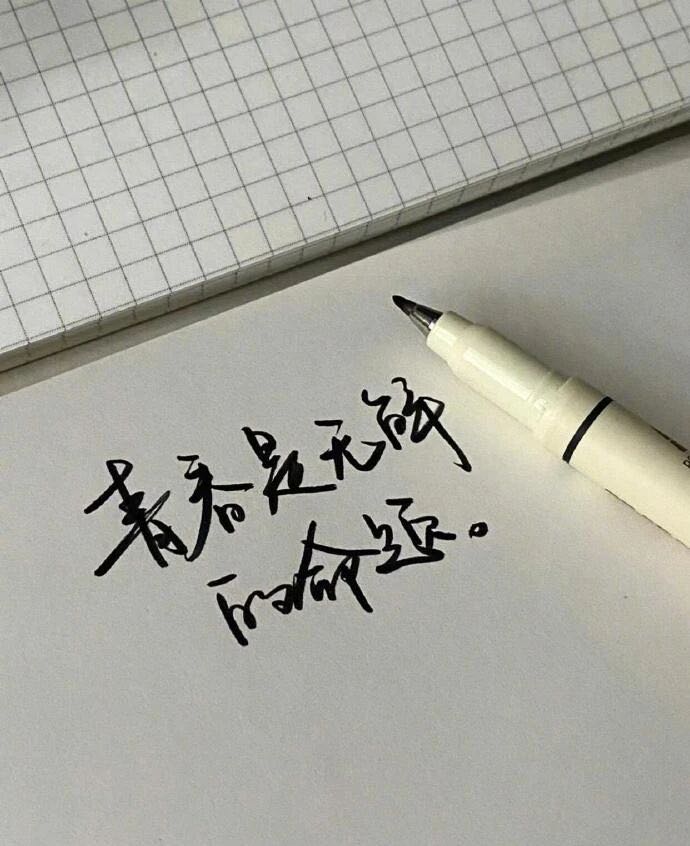 青春是无解
的命题。